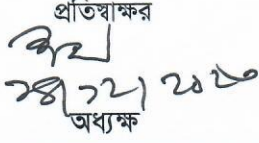 প্রতিস্বাক্ষর
২৪/১২/২০২০
অধ্যক্ষ